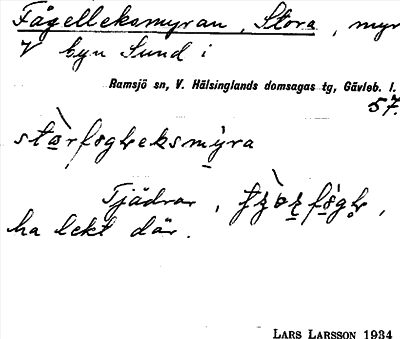 Fågelleksmyran, Stora, myr
V byn Sund i
Ramsjö sn, V. Hälsinglands domsagas tg, Gävleb. l.
57.
Tjädrar,
ha lekt där.
LARS LARSSON 1934